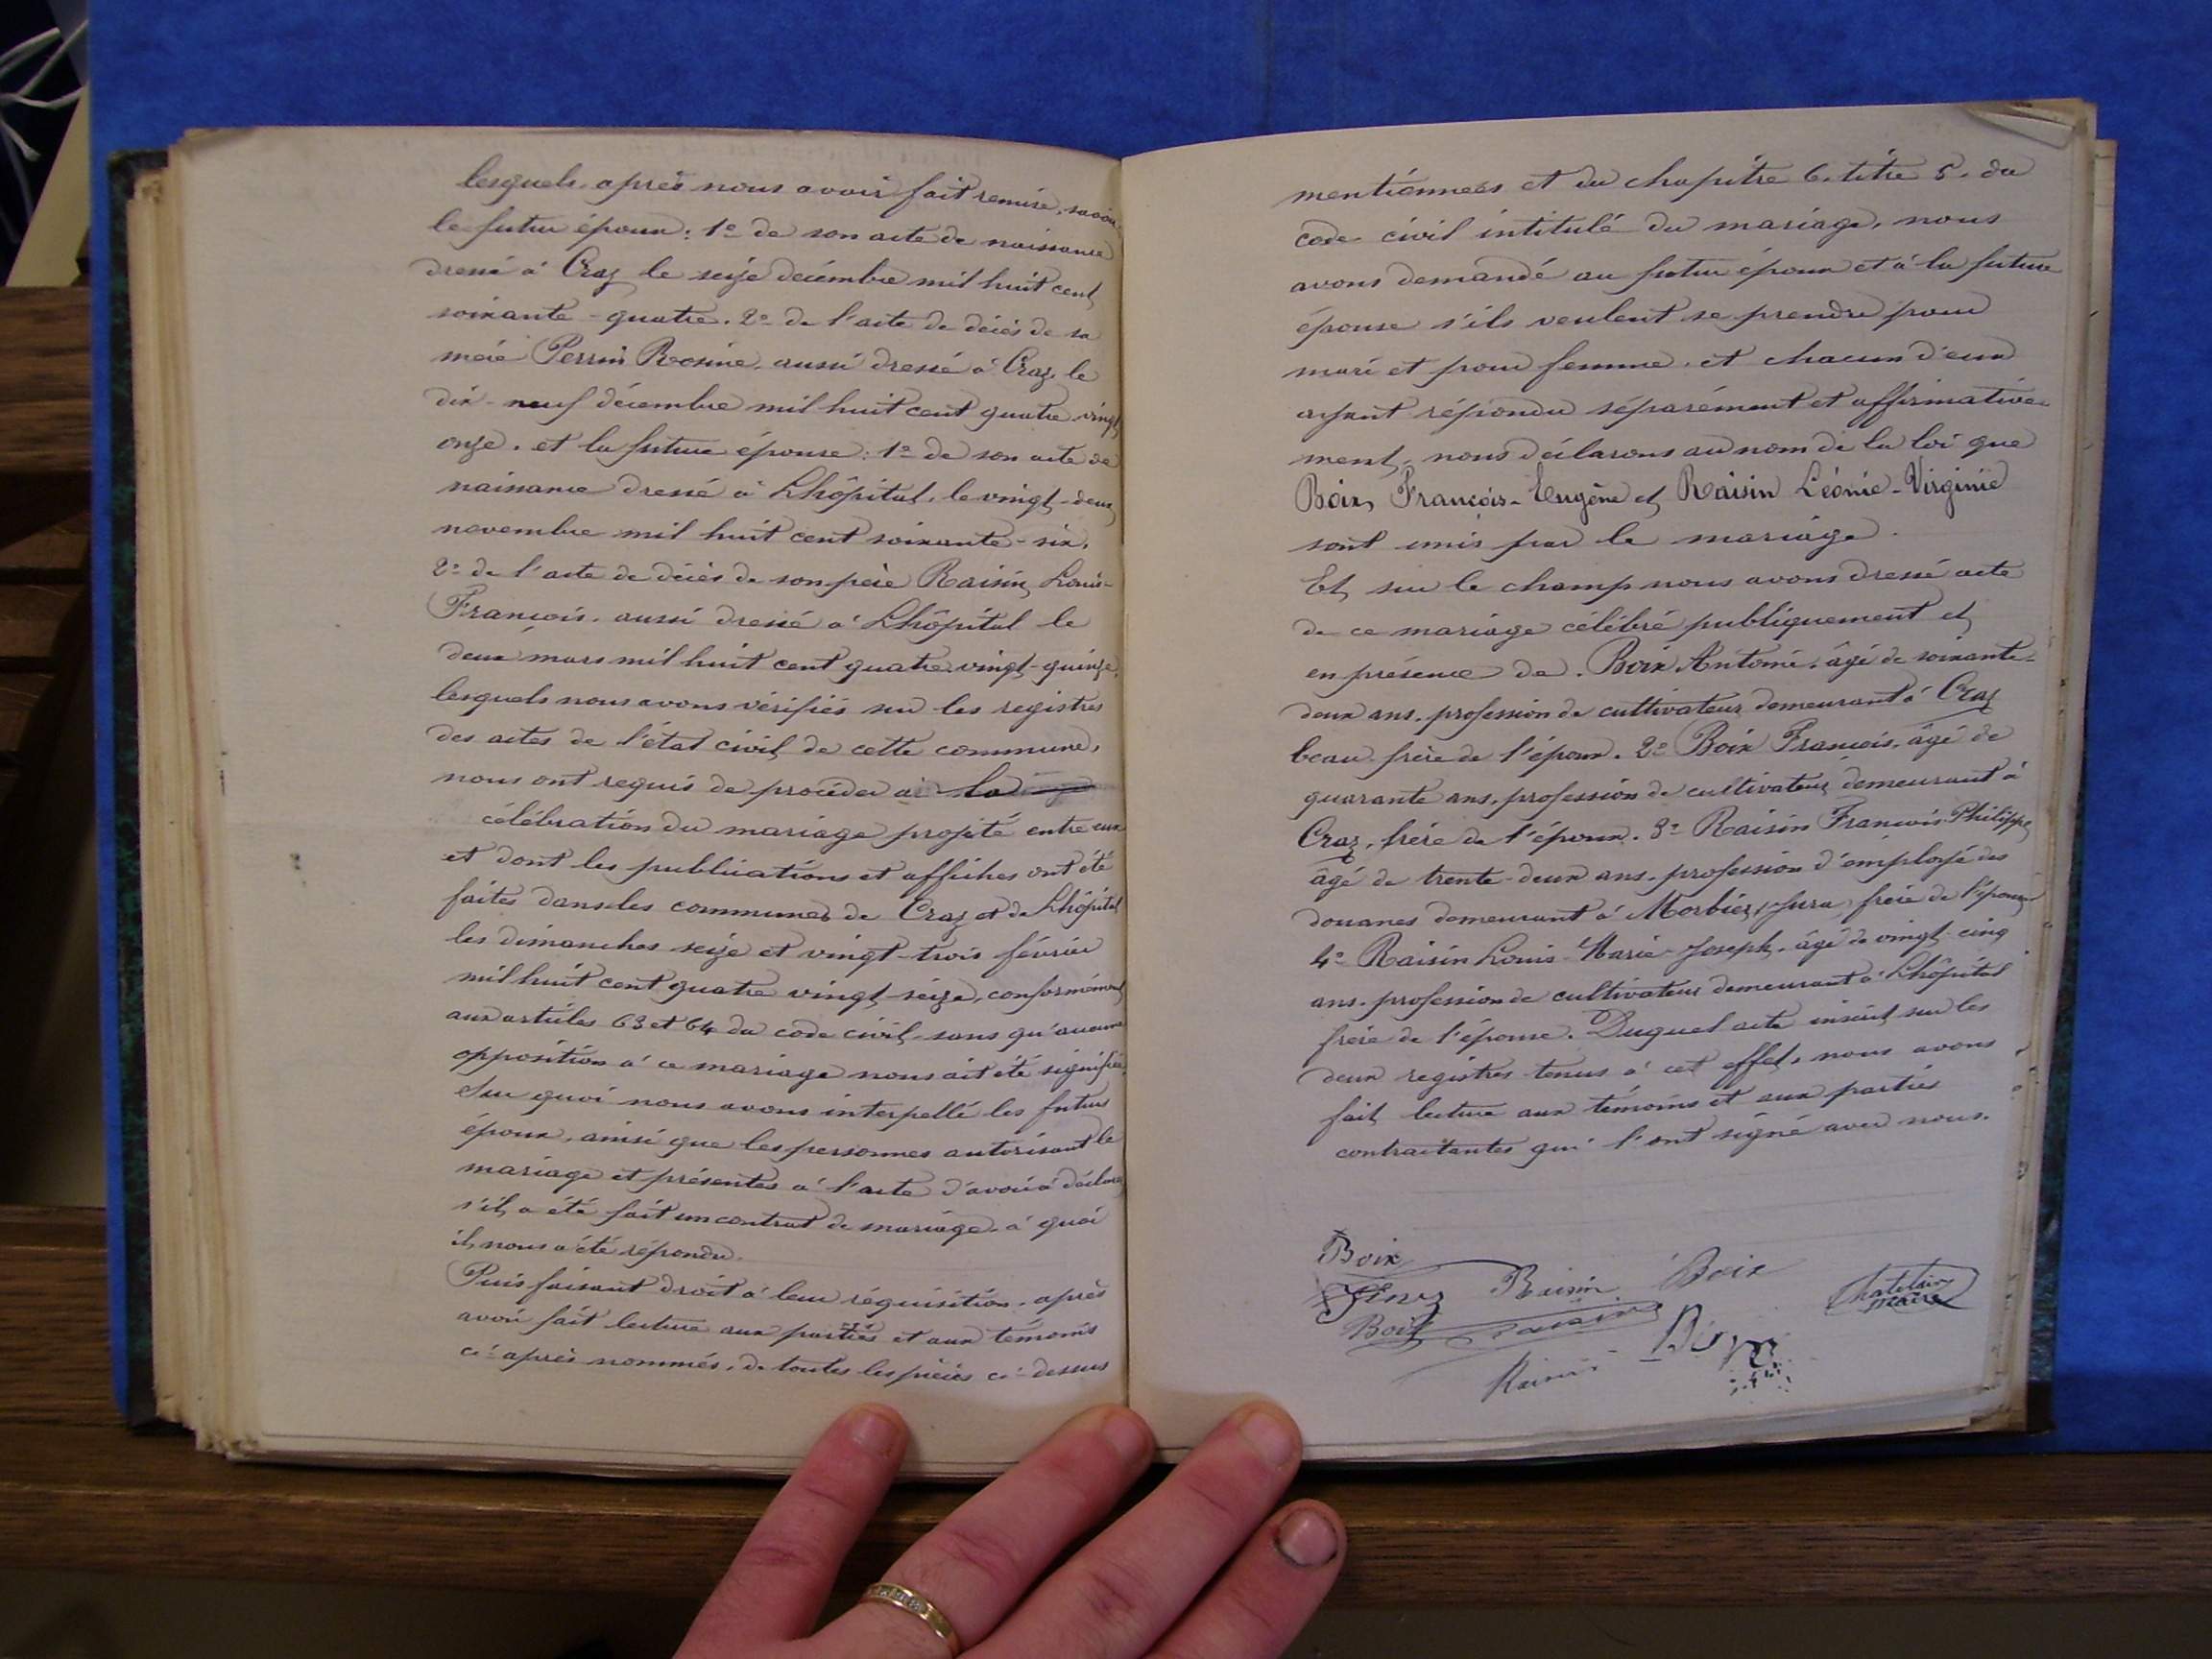 lesquels, après nous avoir fait remise, savoir
le futur époux: 1º de son acte de naissance
dressé à Craz le seize décembre mil huit cent
soixante-quatre. 2º de l'acte de décès de sa
mère Perrin Rosine, aussi dressé à Craz le
dix-neuf décembre mil huit cent quatre vingt
onze. et la future épouse: 1º de son acte de
naissance dressé à Lhôpital, le vingt-deux
novembre mil huit cent soixante-six.
2º de l'acte de décès de son père Raisin, Louis-
François, aussi dressé à Lhôpital le
deux mars mil huit cent quatre vingt-quinze,
lesquels nous avons vérifiés sur les registres
des actes de l'état civil de cette commune,
nous ont requis de procéder à la
célébration du mariage projeté entre eux
et dont les publications et affiches ont été
faites dans les communes de Craz et de Lhôpital
les dimanches seize et vingt-trois février
mil huit cent quatre vingt-seize, conformément
aux articles 63 et 64 du code civil, sans qu'aucune
opposition à ce mariage nous ait été signifiée.
Sur quoi nous avons interpellé les futurs
époux, ainsi que les personnes autorisant le
mariage et présentes à l'acte d'avoir à déclarer
s'il a été fait un contrat de mariage, à quoi
il nous a été répondu.
Puis faisant droit à leur réquisition, après
avoir fait lecture aux parties et aux témoins
ci-après nommés, de toutes les pièces ci-dessus
mentionnées et du chapitre 6. titre 5. du
code civil intitulé du mariage, nous
avons demandé au futur époux et à la future
épouse s'ils veulent se prendre pour
mari et pour femme, et chacun d'eux
ayant répondu séparément et affirmative-
ment, nous déclarons au nom de la loi que
Boix, François-Eugène et Raisin Léonie-Virginie
sont unis par le mariage.
Et sur le champ nous avons dressé acte
de ce mariage célébré publiquement et
en présence de. Boix Antoine, âgé de soixante-
deux ans, profession de cultivateur demeurant à Craz
beau frère de l'époux. 2º Boix François, âgé de
quarante ans, profession de cultivateur demeurant à
Craz, frère de l'époux. 3º Raisin François Philippe
âgé de trente-deux ans, profession d'employé des
douanes demeurant à Morbier, Jura, frère de l'épouse
4º Raisin Louis-Marie-Joseph, âgé de vingt-cinq
ans, profession de cultivateur demeurant à Lhôpital
frère de l'épouse. Duquel acte inscrit sur les
deux registres tenus à cet effet, nous avons
fait lecture aux témoins et aux parties
contractantes qui l'ont signé avec nous.
Boix
Raisin Boix
Chatelain
maire
Boix
Raisin